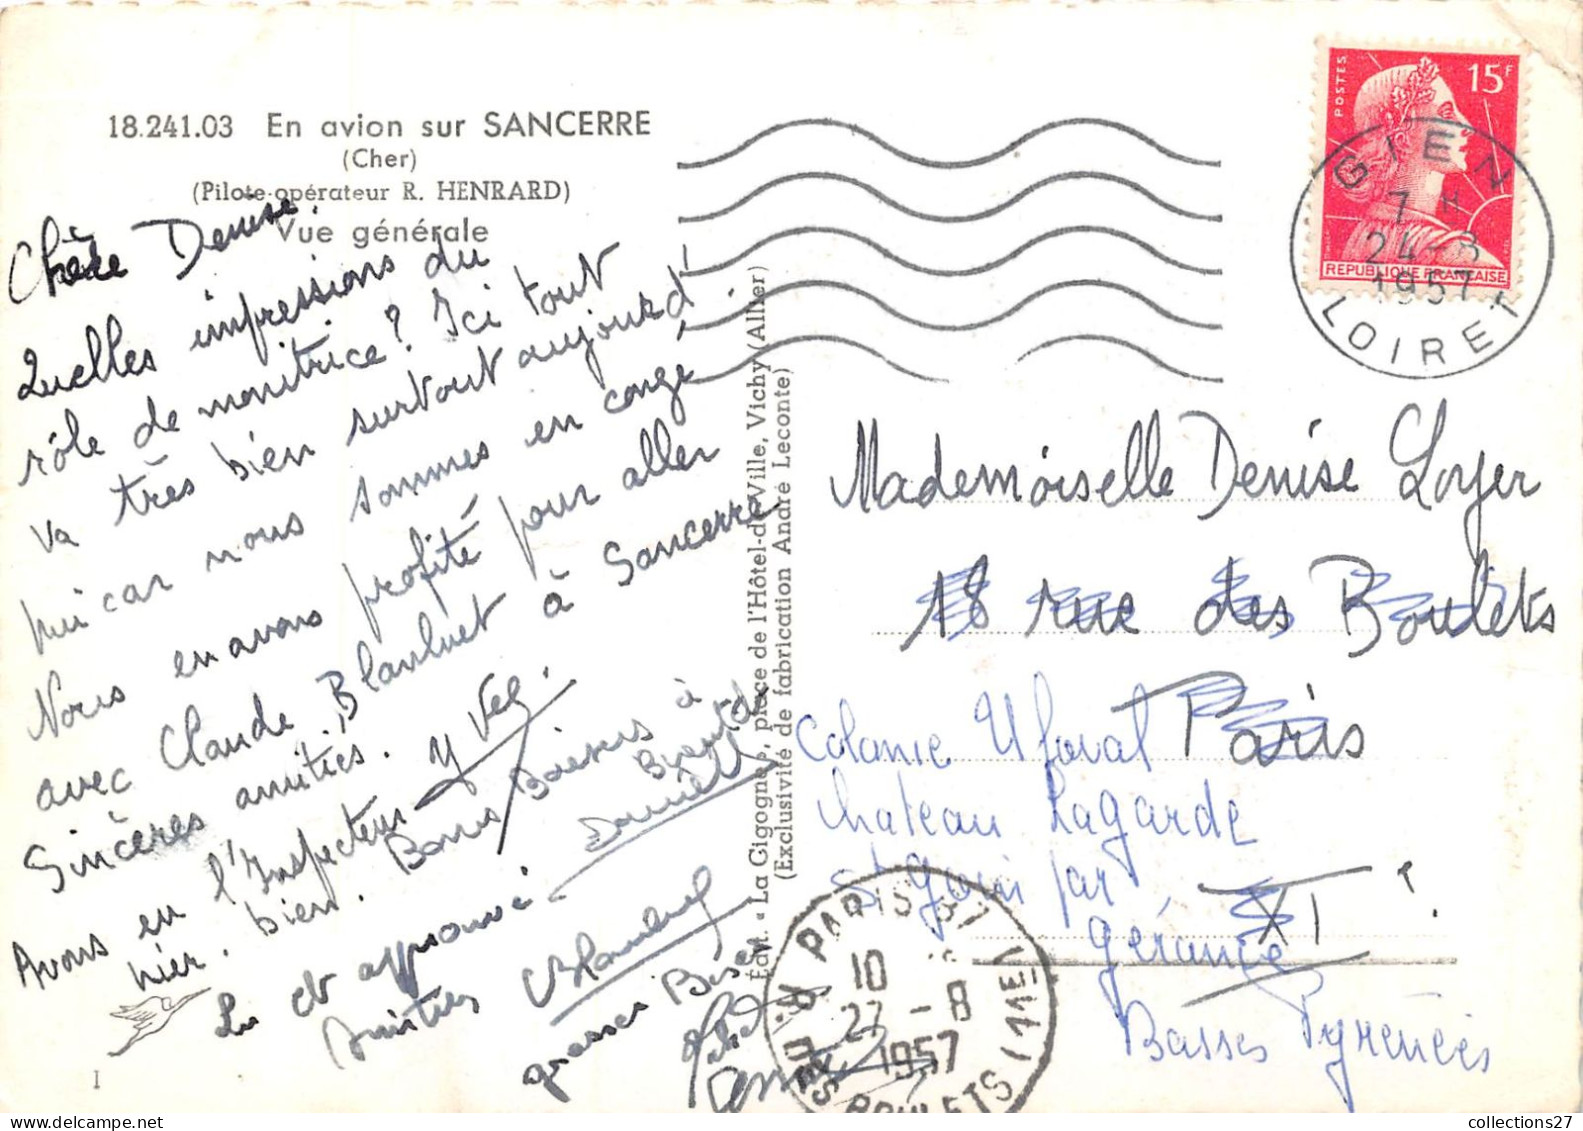 18.241.03 En avion sur SANCERRE
(Cher)
(Pilote-opérateur R. HENRARD)
Vue générale
Chère Denise.
Quelles impressions du
rôle de monitrice? Ici tout
va très bien surtout aujourd'
hui car nous sommes en congé.
Nous en avons profité pour aller
avec Claude, à Sancerre
Sincères amitiés.
Avons eu l'Inspecteur
hier. bien. Bons Baisers à
Lu et approuvé
Amitiés
grosses Bises
1
Édit. « La Cigogne », place de l'Hôtel-de-Ville, Vichy (Allier)
(Exclusivité de fabrication André Leconte)
POSTES
15F
REPUBLIQUE FRANÇAISE
GIEN
7 H
24-8
1957
LOIRET
Mademoiselle Denise Loyer
18 rue des Boulets
Paris
XIe
Colonie Ufoval
Chateau Lagarde
St Goin par
Gérance
Basses Pyrénées
PARIS 87
10
27-8
1957
R. DES BOULETS (11E)
collections27